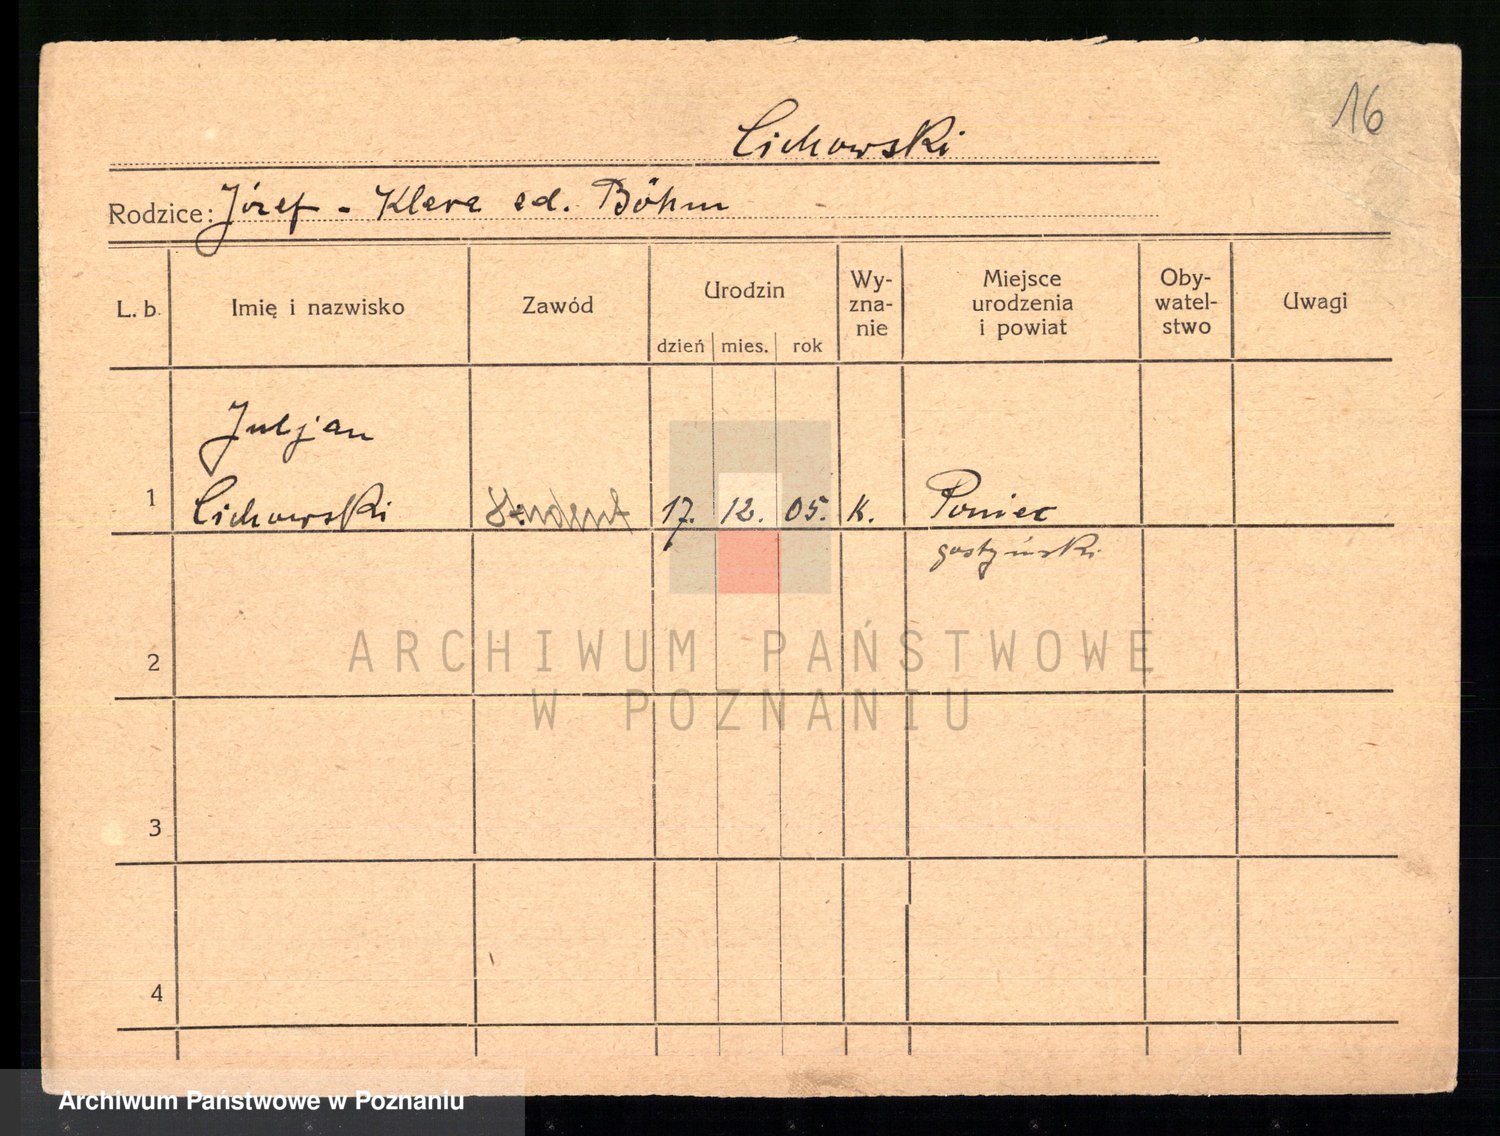 16
Cichowski
Rodzice: Józef - Klara zd. Böhm
L. b. Imię i nazwisko Zawód Urodzin Wy-zna-nie Miejsce urodzenia i powiat Oby-watel-stwo Uwagi
dzień mies. rok
Juljan
1 Cichowski Student 17. 12. 05. K. Poniec
gostyński
2
ARCHIWUM PAŃSTWOWE
W POZNANIU
3
4
Archiwum Państwowe w Poznaniu